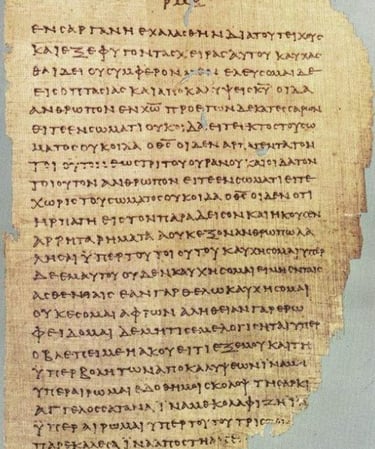 ΕΝϹΑΡΓΑΝΗΕΧΑΛΑϹΘΗΝΔΙΑΤΟΥΤΕΙΧΟΥϹ
ΚΑΙΕΞΕΦΥΓΟΝΤΑϹΧΕΙΡΑϹΑΥΤΟΥΚΑΥΧΑϹ
ΘΑΙΔΕΙΟΥϹΥΜΦΕΡΟΝΜΕΝΕΛΕΥϹΟΜΑΙΔΕ
ΕΙϹΟΠΤΑϹΙΑϹΚΑΙΑΠΟΚΑΛΥΨΕΙϹΚ̅Υ̅ΟΙΔΑ
ΑΝΘΡΩΠΟΝΕΝΧ̅Ω̅ΠΡΟΕΤΩΝΔΕΚΑΤΕϹϹΑΡΩΝ
ΕΙΤΕΕΝϹΩΜΑΤΙΟΥΚΟΙΔΑΕΙΤΕΕΚΤΟϹΤΟΥϹΩ
ΜΑΤΟϹΟΥΚΟΙΔΑΟΘ̅Ϲ̅ΟΙΔΕΝΑΡΠΑΓΕΝΤΑΤΟΝ
ΤΟΙΟΥΤΟΝΕΩϹΤΡΙΤΟΥΟΥΡΑΝΟΥΚΑΙΟΙΔΑΤΟΝ
ΤΟΙΟΥΤΟΝΑΝΘΡΩΠΟΝΕΙΤΕΕΝϹΩΜΑΤΙΕΙΤΕ
ΧΩΡΙϹΤΟΥϹΩΜΑΤΟϹΟΥΚΟΙΔΑΟΘ̅Ϲ̅ΟΙΔΕΝΟΤΙ
ΗΡΠΑΓΗΕΙϹΤΟΝΠΑΡΑΔΕΙϹΟΝΚΑΙΗΚΟΥϹΕΝ
ΑΡΡΗΤΑΡΗΜΑΤΑΑΟΥΚΕΞΟΝΑΝΘΡΩΠΩΛΑ
ΛΗϹΑΙΫΠΕΡΤΟΥΤΟΙΟΥΤΟΥΚΑΥΧΗϹΟΜΑΙΥΠΕΡ
ΔΕΕΜΑΥΤΟΥΟΥΔΕΝΚΑΥΧΗϹΟΜΑΙΕΙΜΗΕΝΤΑΙϹ
ΑϹΘΕΝΕΙΑΙϹΕΑΝΓΑΡΘΕΛΩΚΑΥΧΗϹΟΜΑΙ
ΟΥΚΕϹΟΜΑΙΑΦΡΩΝΑΛΗΘΕΙΑΝΓΑΡΕΡΩ
ΦΕΙΔΟΜΑΙΔΕΜΗΤΙϹΕΜΕΛΟΓΙϹΗΤΑΙΥΠΕΡ
ΟΒΛΕΠΕΙΜΕΗΑΚΟΥΕΙΤΙΕΞΕΜΟΥΚΑΙΤΗ
ΫΠΕΡΒΟΛΗΤΩΝΑΠΟΚΑΛΥΨΕΩΝΙΝΑΜΗ
ΥΠΕΡΑΙΡΩΜΑΙΕΔΟΘΗΜΟΙϹΚΟΛΟΨΤΗϹΑΡΚΙ
ΑΓΓΕΛΟϹϹΑΤΑΝΑΙΝΑΜΕΚΟΛΑΦΙΖΗΙΝΑ
ΫΠΕΡΑΙΡΩΜΑΙΥΠΕΡΤΟΥΤΟΥΤΡΙϹ
ΠΑΡΕΚΑΛΕϹΑΙΝΑΑΠΟϹΤΗ